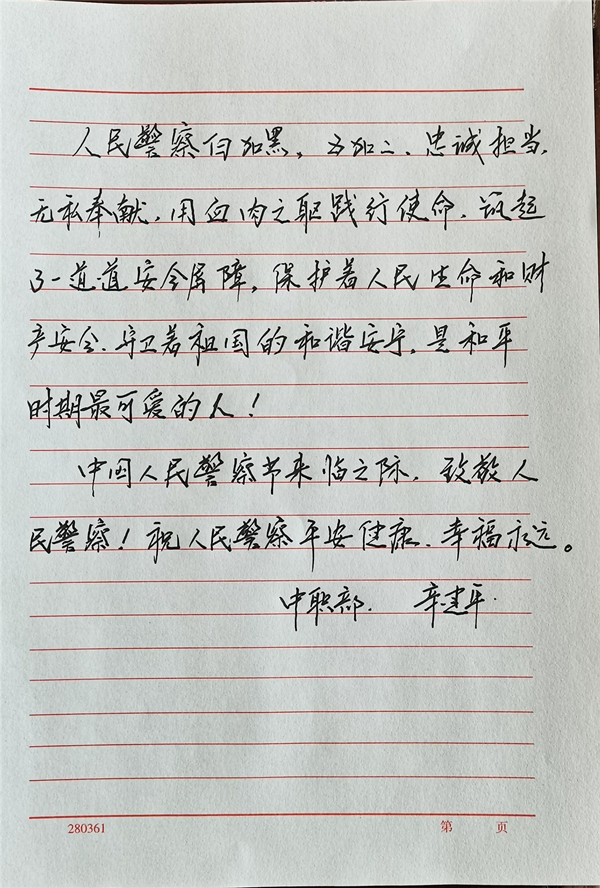 人民警察白加黑，五加二、忠诚担当、
无私奉献，用血肉之躯践行使命，筑起
了一道道安全屏障，保护着人民生命和财
产安全、守卫着祖国的和谐安宁，是和平
时期最可爱的人！
中国人民警察节来临之际，致敬人
民警察！祝人民警察平安健康、幸福永远。
中职部 辛建平
280361
第 页